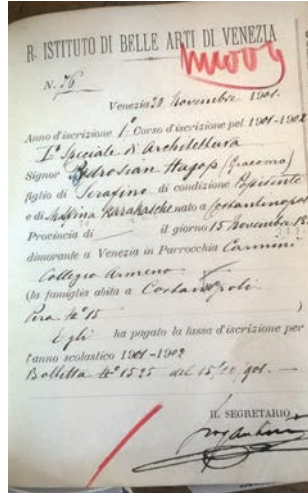 R. ISTITUTO DI BELLE ARTI DI VENEZIA
N. 76
Venezia 30 Novembre 1901.
Anno d'iscrizione 1° Corso d'iscrizione pel 1901-1902
I° Speciale di Architettura
Signor Bedrosian Hagop (Giacomo)
figlio di Serafino di condizione Possidente
e di Karakasche nato a Costantinopoli
Provincia di — il giorno 15 Novembre
dimorante a Venezia in Parrocchia Carmini
Collegio Armeno
(la famiglia abita a Costantinopoli
Pera N° 15
)
Egli ha pagato la tassa d'iscrizione per
l'anno scolastico 1901-1902
Bolletta N° 1525 del 15/12/901.
IL SEGRETARIO